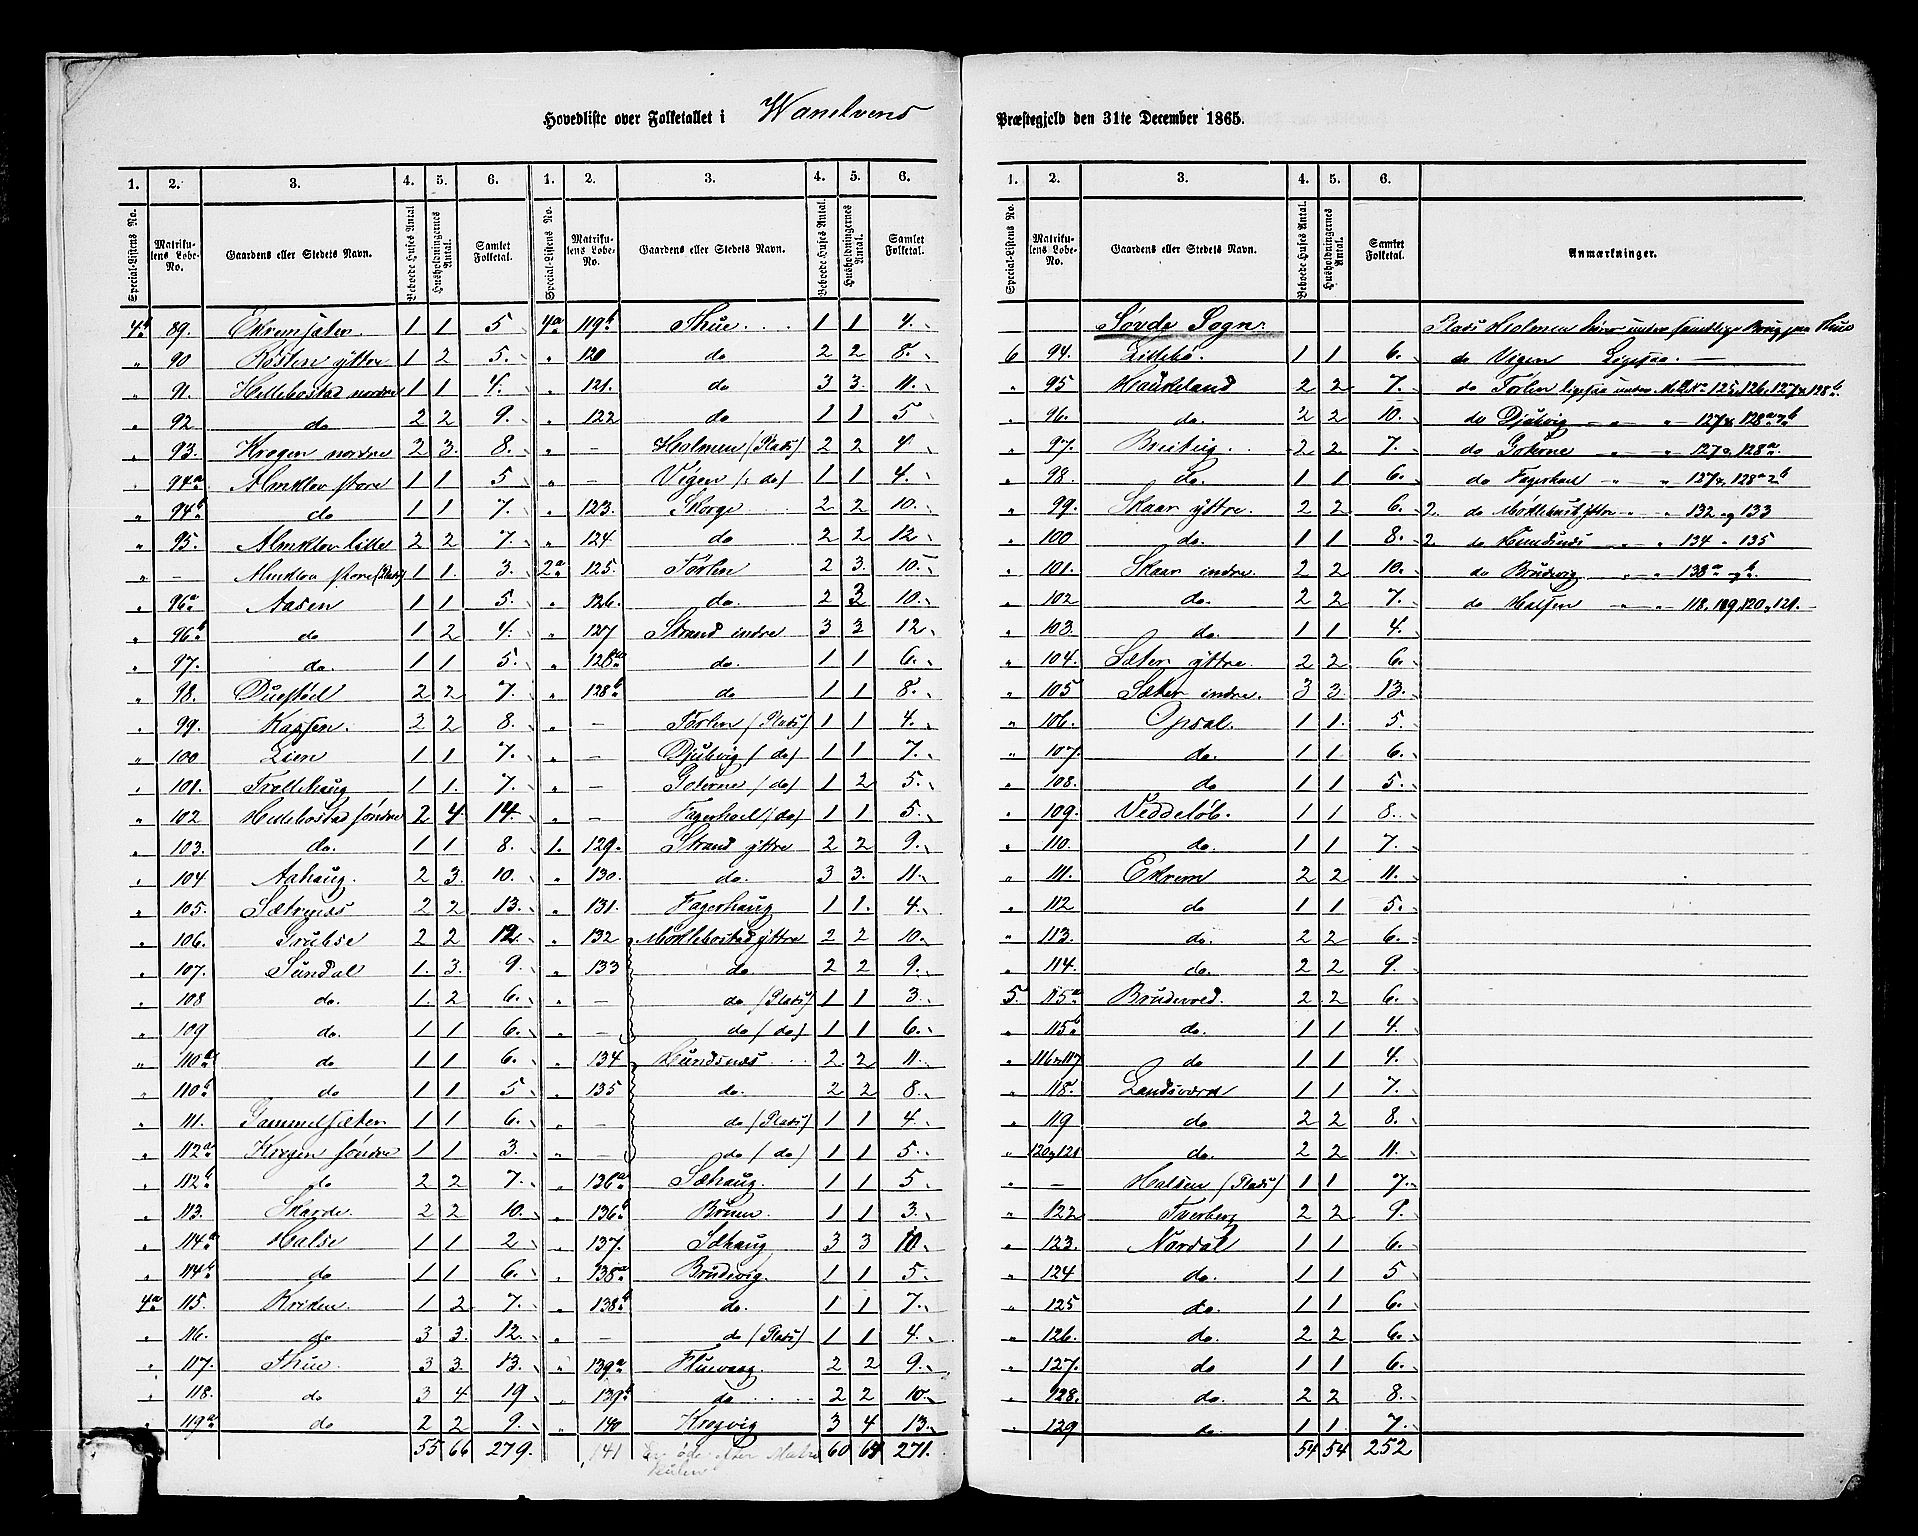 Hovedliste over Folketallet i Wanelvens
Præstegjeld den 31te December 1865.
1. 2. 3. 4. 5. 6. 1. 2. 3. 4. 5. 6.
Special-Listens No. Matrikulens Løbe-No. Gaardens eller Stedets Navn. Beboede Huses Antal. Husholdningernes Antal. Samlet Folketal. Special-Listens No. Matrikulens Løbe-No. Gaardens eller Stedets Navn. Beboede Huses Antal. Husholdningernes Antal. Samlet Folketal.
4b 89. Ekremsæter 1 1 5 4a 119b Thue 1 1 4.
" 90 Rosten yttre 1 2 5. " 120 do 2 2 8.
" 91. Hellebostad nordre 1 1 4. " 121. do 3 3. 11.
" 92 do 2 2 9. " 122 do 1 1 5
" 93. Kragen nordre 2 3. 8. " – Holmen (Plads) 2 2 4
" 94a Almklov store 1 1 5 " – Vigen (: do) 1 1 4.
" 94b do 1 1 7. " 123. Skorge 2 2 10.
" 95. Almklov lille 2 2 7. " 124. do 2 2 12
" – Almklov store (Plads) 1 1. 3. 2a 125. Torlen 2 3. 10.
" 96a Aasen 1 1 5. " 126. do. 2 3 10.
" 96b do 1 2 4. " 127 Strand indre 3 3 12
" 97. do. 1 1 5. " 128a do. 1 1 6.
" 98. Duestøl 2 2 7. " 128b do 1 1 8.
" 99. Kapsen. 2 2 8. " – Torlen (Plads) 1 1 4.
" 100 Lien 1 1 7. " – Djubvig (do) 1 1 7.
" 101. Trollehaug 1 1. 7. " – Goterne (do) 1 2 5.
" 102 Hellebostad søndre 2 4. 14. " – Fagerhoel (do) 1 1 5.
" 103. do. 1 1 8. 1. 129. Strand yttre 2 2 9.
" 104 Aahaug. 2 3. 10. " 130. do. 3 3. 11.
" 105. Sætrenes 2 2 13. " 131. Fagerhaug 1 1. 4.
" 106. 2 2 12. " 132 Moklebostad yttre 2 2 10.
" 107. Sundal 1. 3. 9. " 133 do 2 2 9.
" 108 do. 1. 2 6. " – do (Plads) 1 1 3.
" 109 do. 1 1 6. " – do (do) 1 1 6.
" 110a do 1 1 6. " 134 Hundsnes 2 2 11.
" 110b do 1 1 5 " 135 do. 2 2 8
" 111. Gammelsæter 1 1 6. " – do (Plads) 1 1 4
" 112a Kragen søndre 1 1 3. " – do (do) 1 1 5.
" 112b do 2 2 7. " 136a Sæhaug. 1 1 5
" 113. Skorde. 2 2 10. " 136b Bruen. 1 1 3.
" 114a Halse 1 1 2 " 137. Sæhaug 3 3 10.
" 114b do 1 1 6. " 138a Brudevig. 1 1 5.
4a 115. Kviden 1 2 7. " 138b do. 1 1 7.
" 116. do 3 3. 12. " – do (Plads) 1 1 4.
" 117. Thue. 3 3. 13. " 139a Fluevaag. 2 2 9.
" 118. do 3 4 19 " 139b do 2 2 10.
" 119a do 2 2 9. " 140 Kragvig 3 4 13.
55 66 279. 141 60 64 271.
1. 2. 3. 4. 5. 6.
Special-Listens No. Matrikulens Løbe-No. Gaardens eller Stedets Navn. Beboede Huses Antal. Husholdningernes Antal. Samlet Folketal. Anmærkninger.
Søvde Sogn. Plads Holmen hører under samtlige Brug paa Thue
6 94. Lillebø. 1 1 6. do Vigen Ligesaa. —
" 95 Haukeland 2 2 7. do Torlen ligesaa under M.No 125, 126, 127 & 128b.
" 96. do. 2 2 10. do Djubvig " " 127 & 128a & b
" 97. Breiteig. 2 2 7. do Goterne " " 127 & 128a.
" 98. do. 1 1 6. do Fagerhoel " " 127 & 128a & b
" 99. Skaar yttre. 2 2 6. 2. do Moklebust yttre " " 132 og 133
" 100 do. 1 1 8. 2. do Hundsnes " " 134 " 135
" 101. Skaar indre. 2 2 10. do Brudevig " " 138a og b.
" 102 do. 2 2 7. do Halsen " " 118, 119, 120, 121.
" 103. do. 1 1 4.
" 104. Sæter yttre. 2 2 6.
" 105 Sæter indre. 3 3. 13.
" 106. Opsal. 1 1. 5.
" 107. do. 1 1 6.
" 108. do 1 1 5.
" 109. Veddeløb. 1 1 8.
" 110. do. 1 1 7.
" 111. Ekrem 2 2 11.
" 112 do 1 1 5.
" 113. do. 2 2 6.
" 114. do. 2 2 9.
5. 115a Brudevold. 2 2 6.
" 115b do. 1 1 4.
" 116 & 117 do 1 1 4.
" 118. Landsværk 1 1 7.
" 119 do 2 2 8.
" 120 & 121 do. 2 2 11.
" – Halsen (Plads) 1 1 7.
" 122 Tverberg 2 2 9.
" 123. Nordal 1 1 6.
" 124 do. 1 1 5
" 125 do. 1 1 6.
" 126. do. 2 2 6.
" 127. do 1 1 6.
" 128. do. 2 2 8.
" 129 do. 1 1. 7.
54 54 252